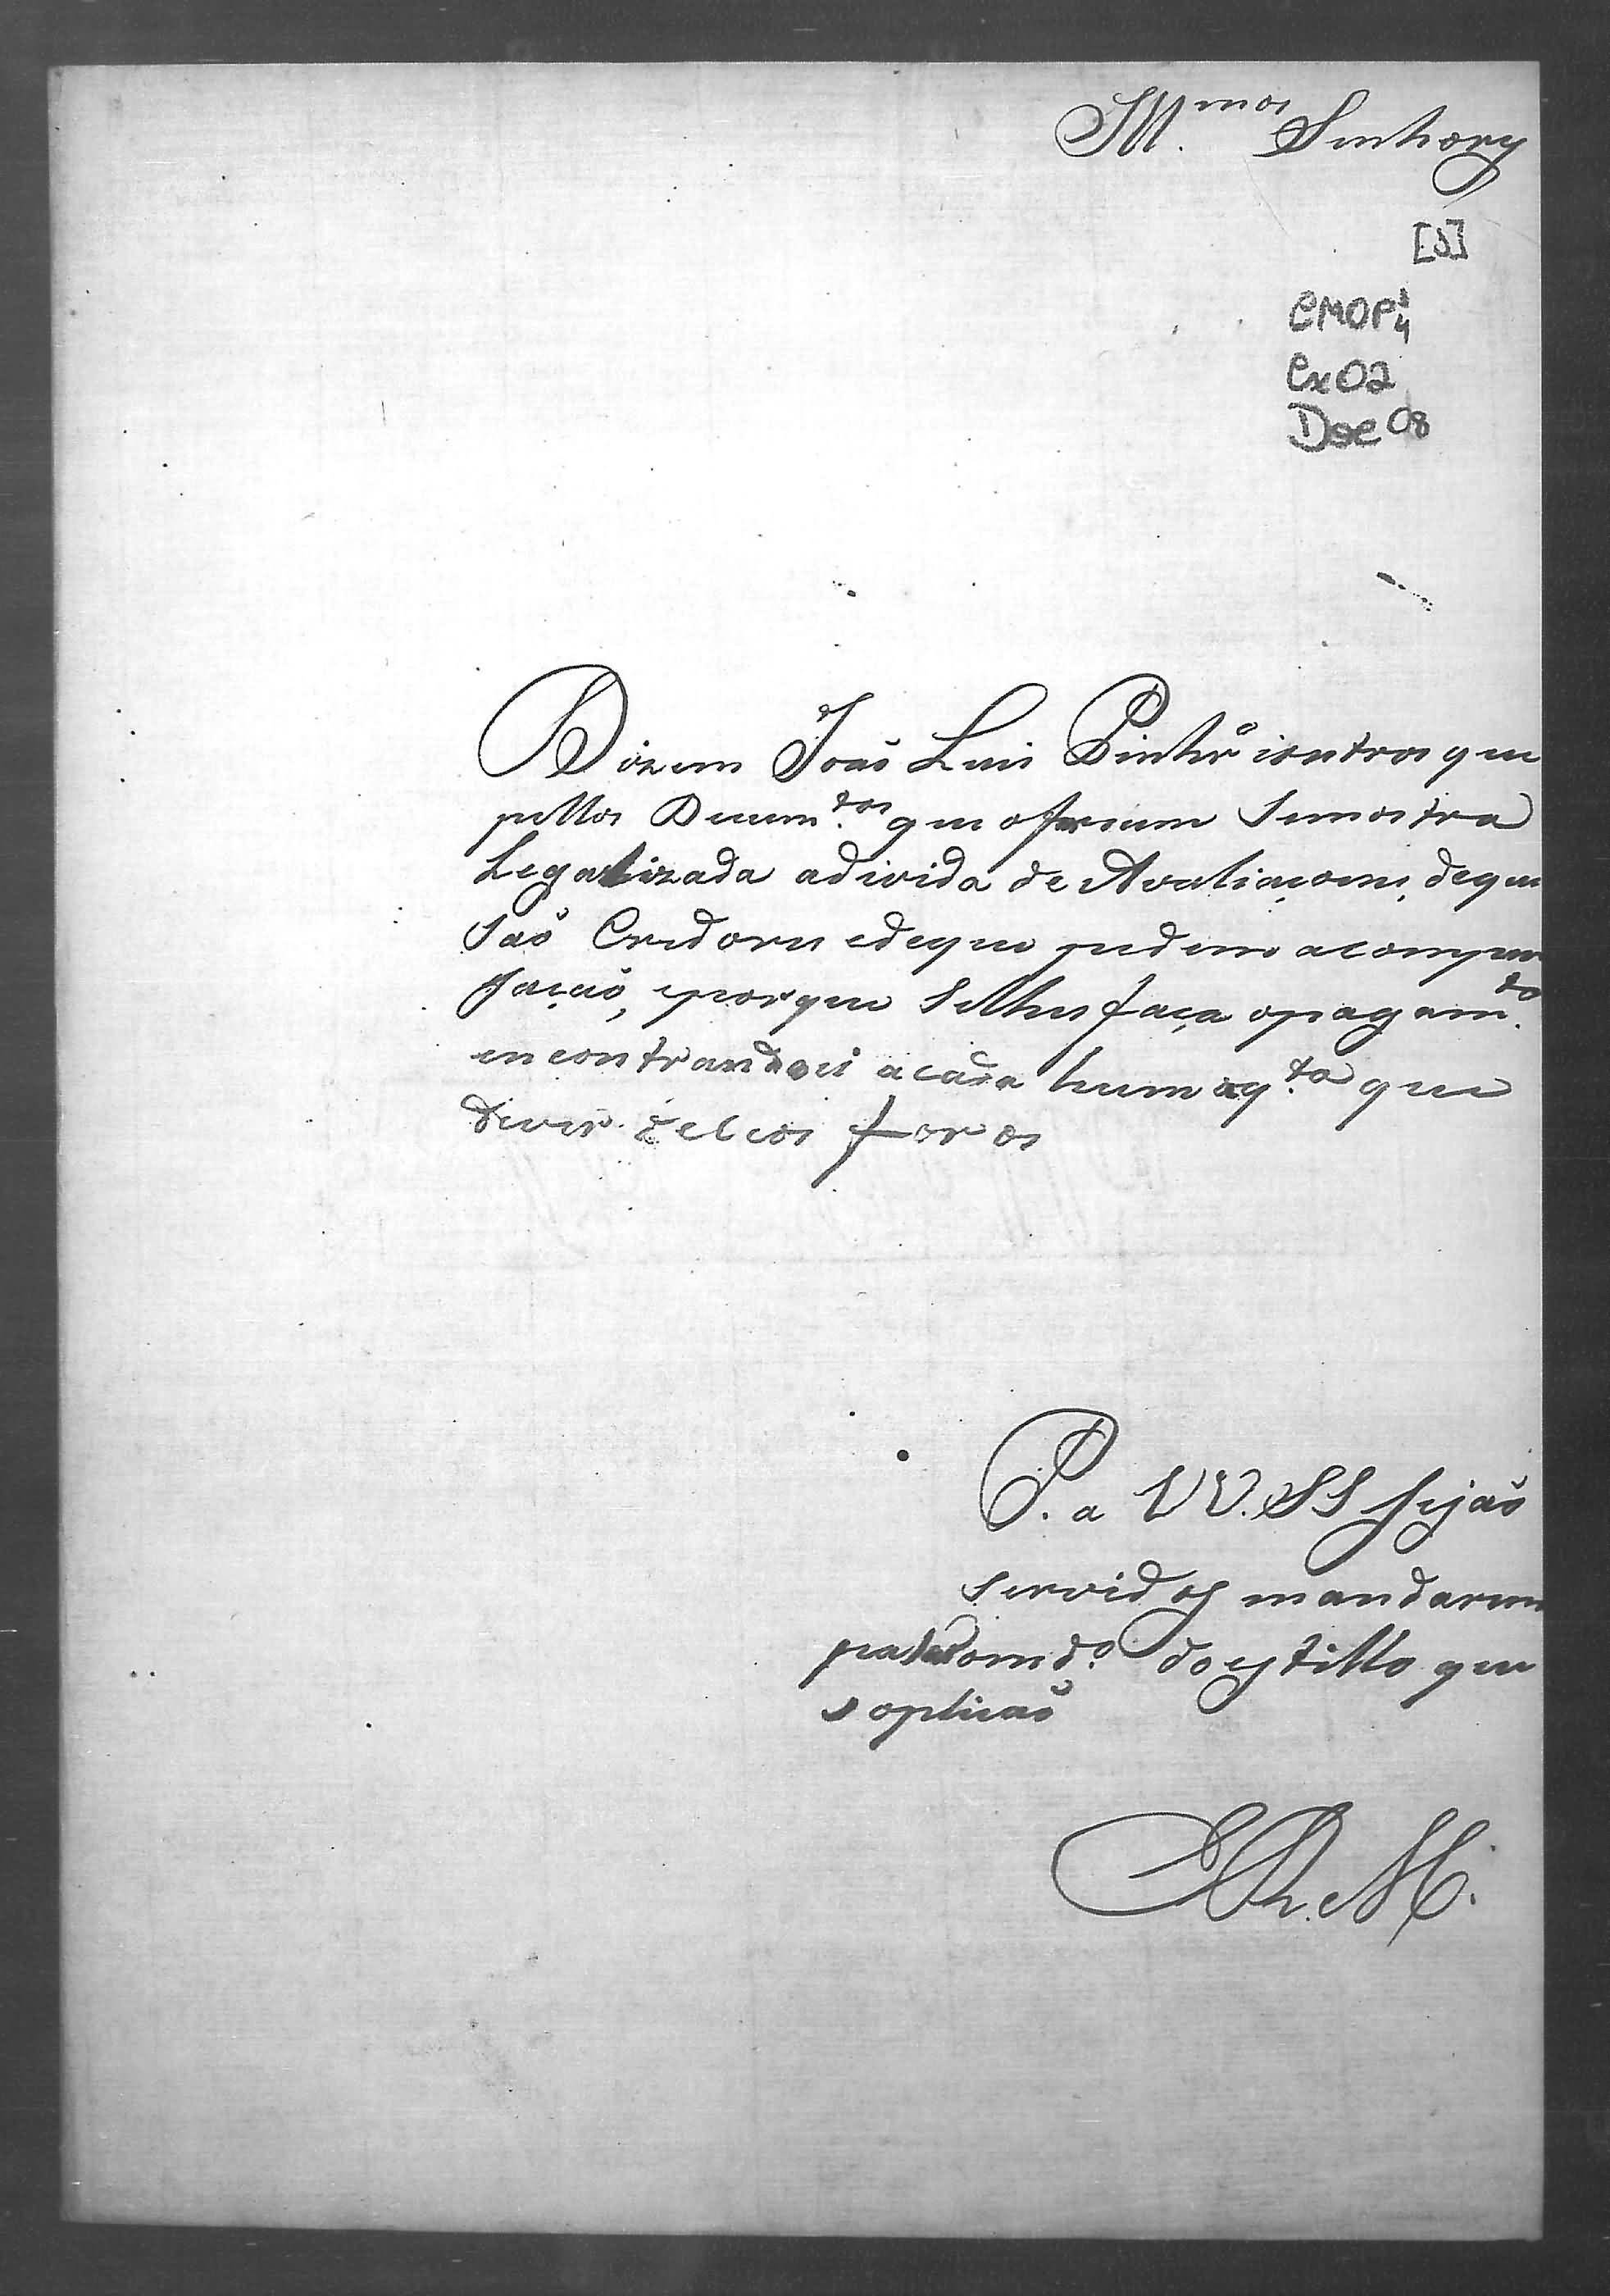 Ill.mos Senhores
[3]
CMOP 1/4
Cx02
Doc 08
Dizem João Luis Pinhr.o ioutros que
pellos Docum.tos que oferecem Semostra
Legalizada adivida de Avaliaçoens, deque
São Credores edeque pedem acompen
saçaõ, eporque Selhes faça opagam.to
encontrandosi acada hum aq.ta que
dever de seos foros
P. a VV. SS sejão
servidos mandarem
pasar omd.o do estillo que
soplicaõ
E R. M.